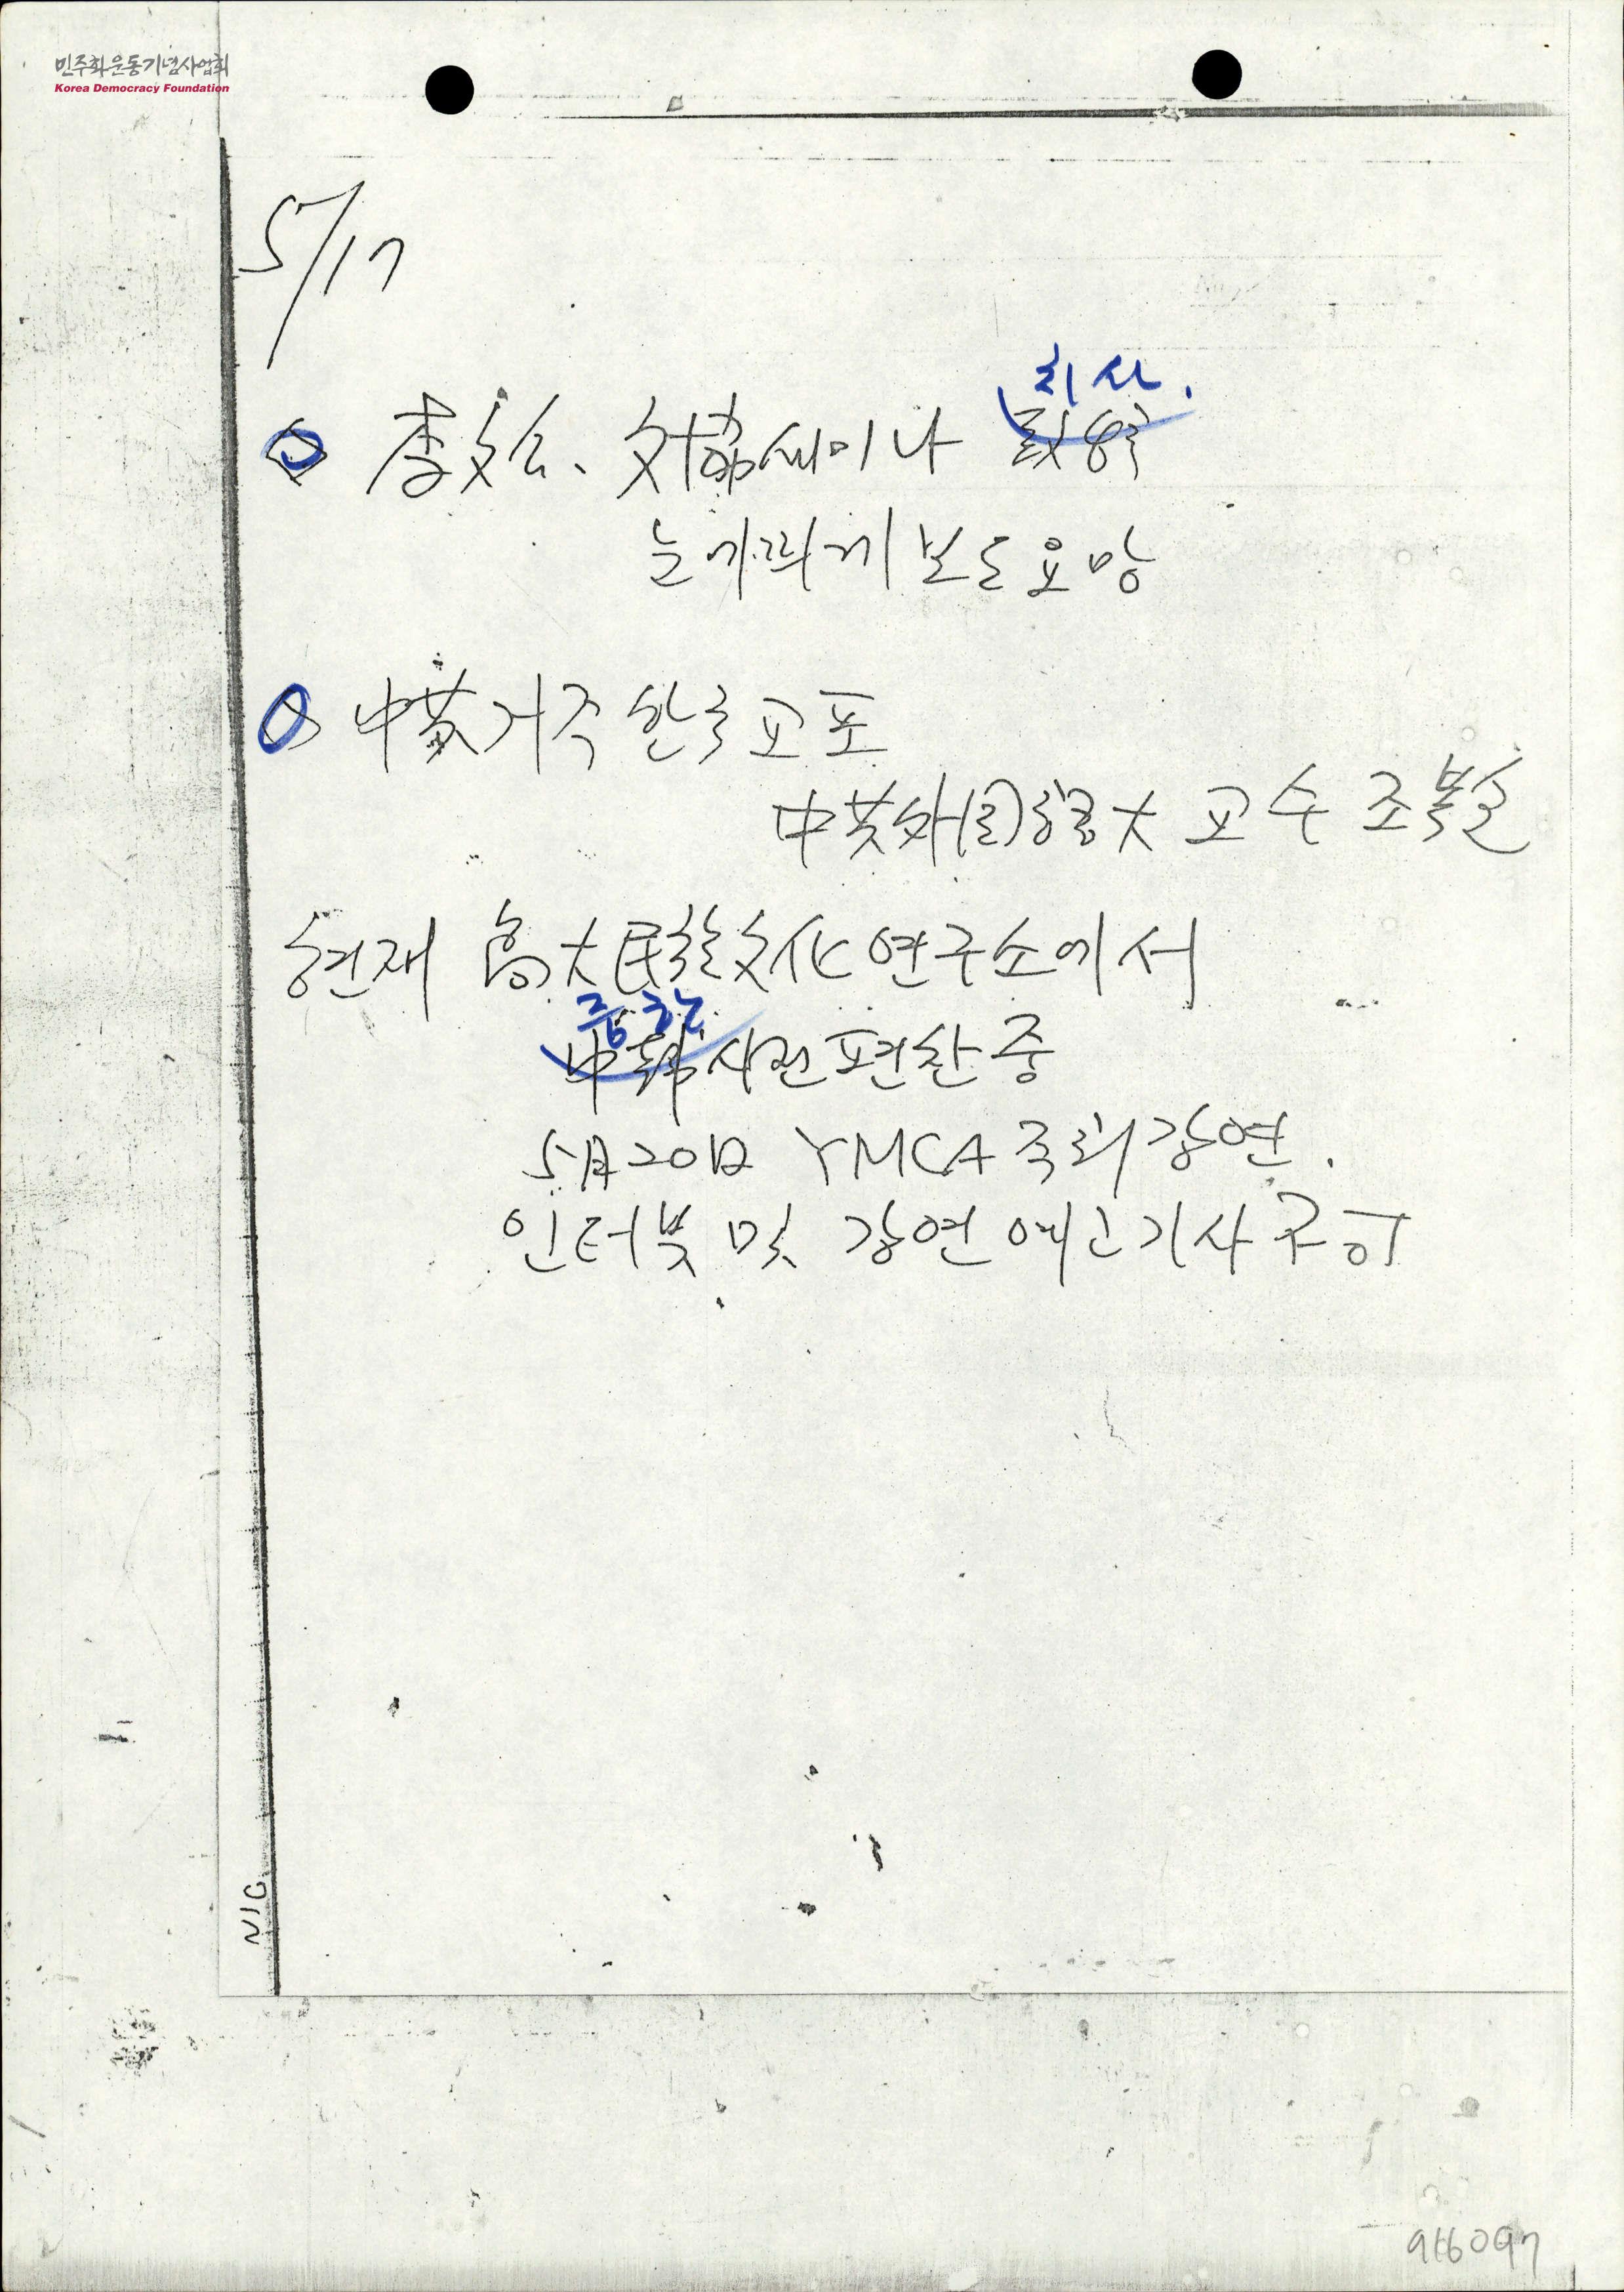 민주화운동기념사업회
Korea Democracy Foundation
5/17
치사.
李文公、文共 세미나 致辞
눈에띄게 보도요망
中共거주 한국교포
中共外国語大 교수
현재 高大民族文化연구소에서
중한
中韓사전편찬중
5月20日 YMCA 주최 강연.
인터뷰 및 강연 예고기사
916097